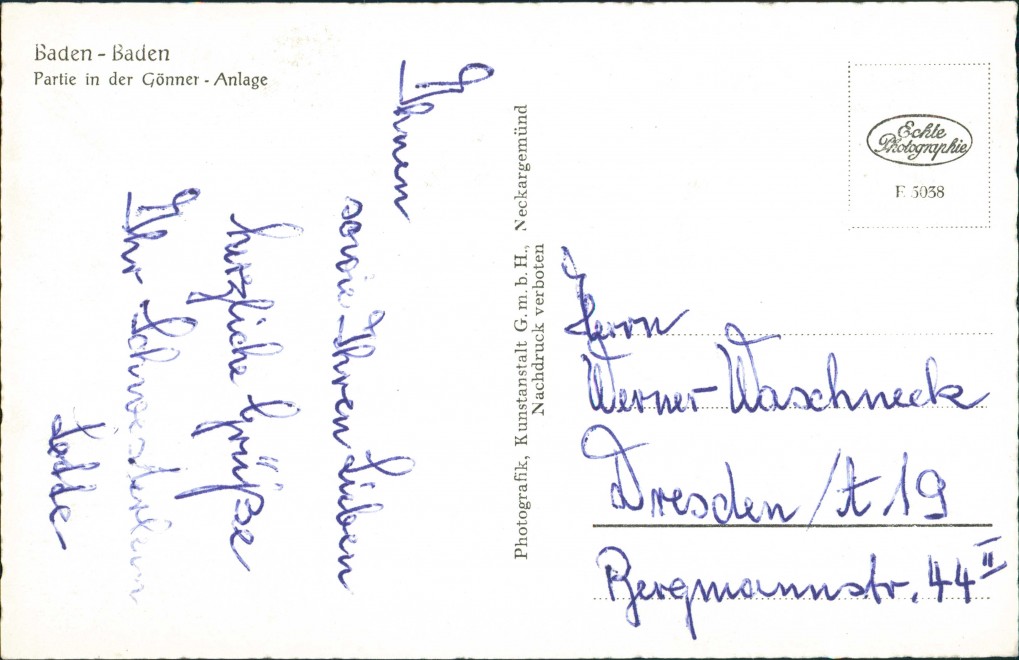 Baden - Baden
Partie in der Gönner - Anlage
Ihnen
sowie Ihren Lieben
herzliche Grüße
Ihr Schwesterlein
Lotte
Photografik, Kunstanstalt G. m. b. H., Neckargemünd
Nachdruck verboten
Echte
Photographie
E 5038
Herrn
Werner Waschneck
Dresden / A 19
Bergmannstr. 44 II